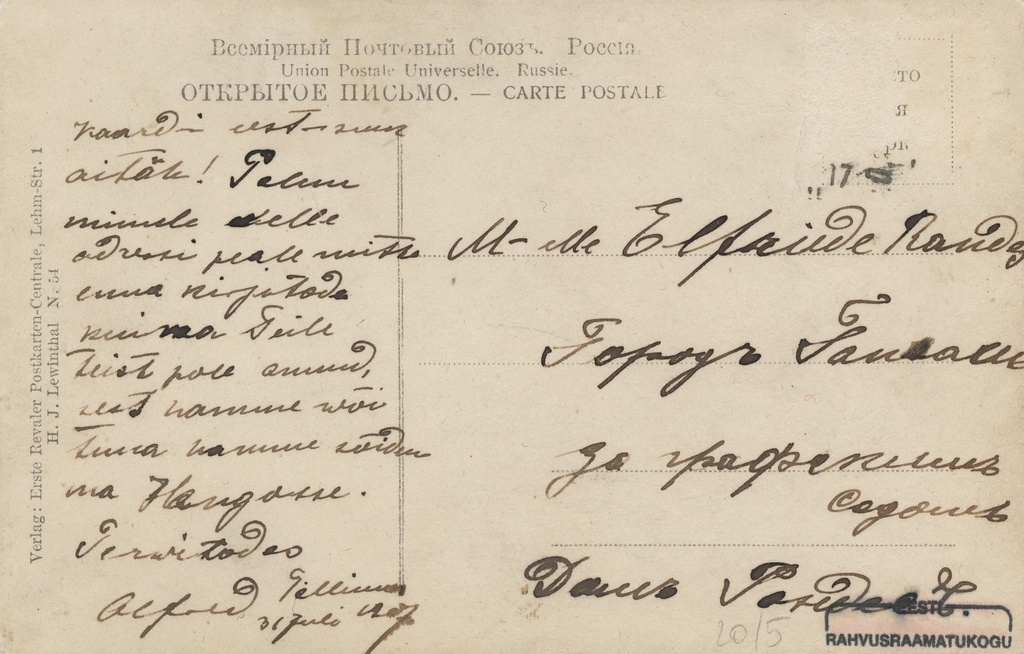 Всемірный Почтовый Союзъ. Россія.
Union Postale Universelle. Russie.
ОТКРЫТОЕ ПИСЬМО. — CARTE POSTALE
Verlag: Erste Revaler Postkarten-Centrale, Lehm-Str. 1
H. J. Lewinthal N. 54
kaardi eest
aitäh! Palun
minule selle
adressi peale mitte
enne kirjutada
kui ma Teile
teist pole annud,
sest homme või
tuna homme sõidan
ma Hangosse.
Terwitades
Alfred Tallinn
31 Juli 1907
то
я
"17
M-lle Elfriede Rande
Городъ Гапсаль
за графскимъ
садомъ
Домъ
20/5
EESTI
RAHVUSRAAMATUKOGU